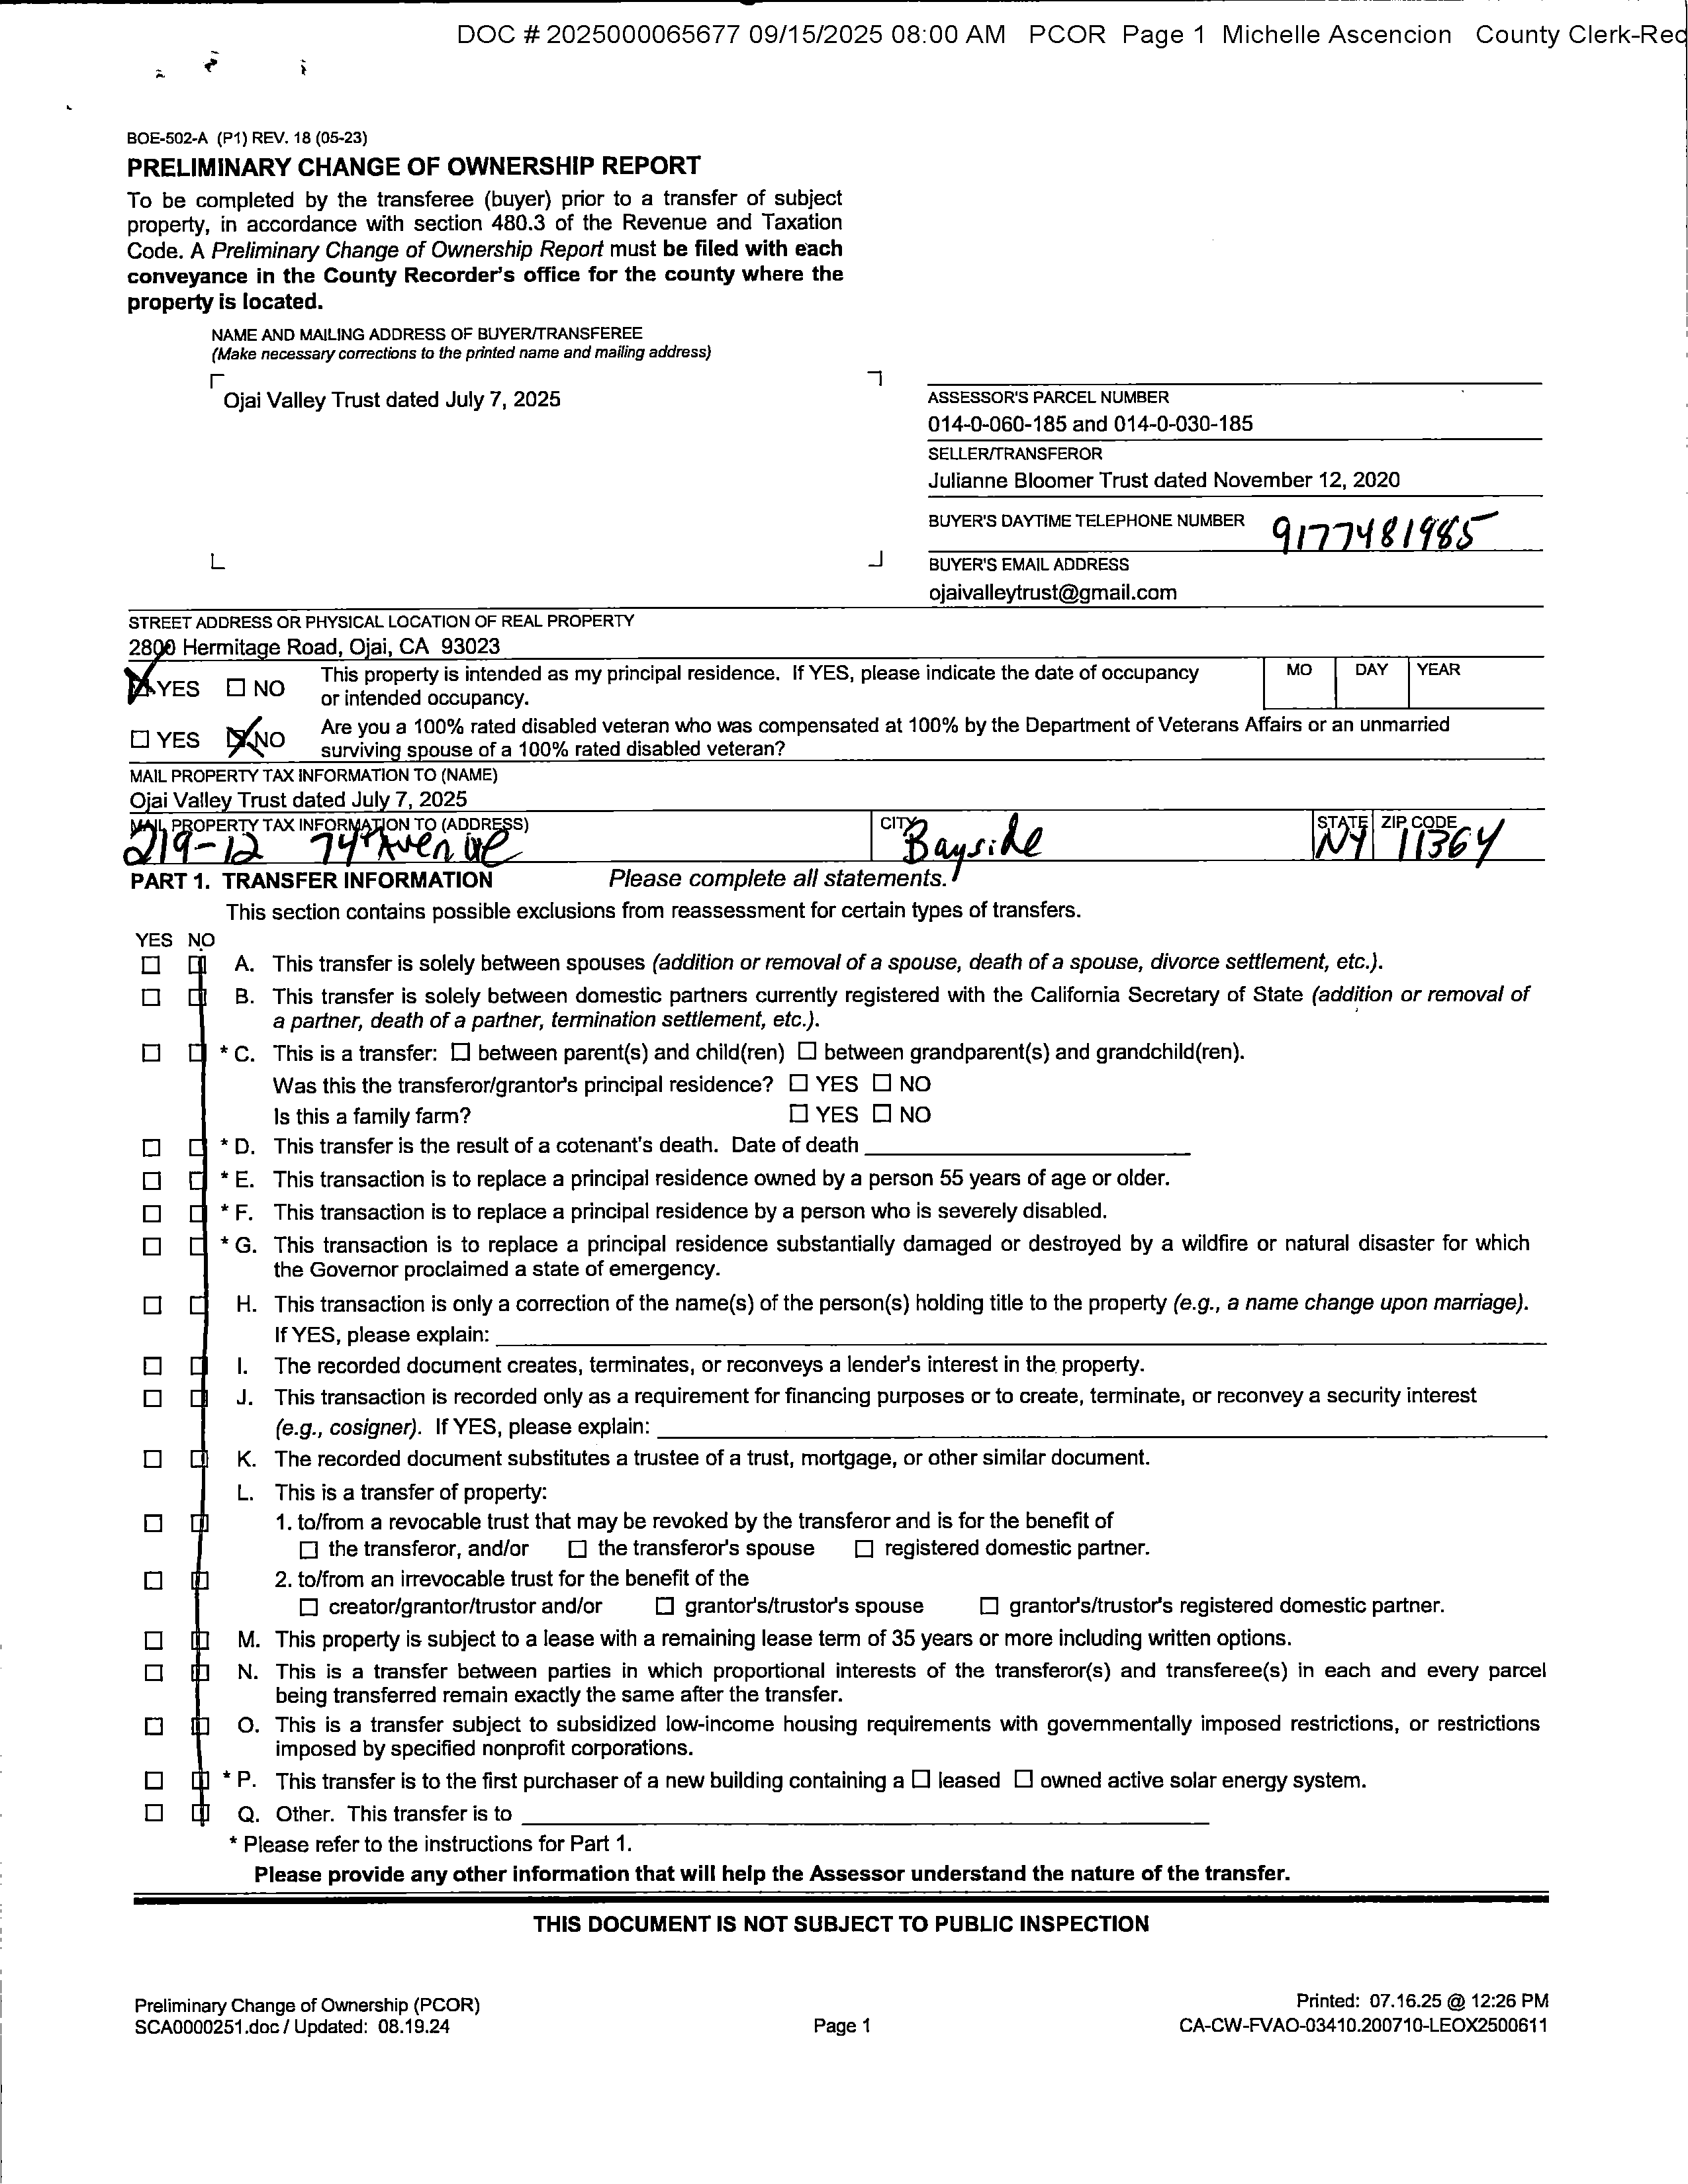 DOC # 2025000065677 09/15/2025 08:00 AM PCOR Page 1 Michelle Ascencion County Clerk-Rec
BOE-502-A (P1) REV. 18 (05-23)
PRELIMINARY CHANGE OF OWNERSHIP REPORT
To be completed by the transferee (buyer) prior to a transfer of subject
property, in accordance with section 480.3 of the Revenue and Taxation
Code. A Preliminary Change of Ownership Report must be filed with each
conveyance in the County Recorder's office for the county where the
property is located.
NAME AND MAILING ADDRESS OF BUYER/TRANSFEREE
(Make necessary corrections to the printed name and mailing address)
Ojai Valley Trust dated July 7, 2025
ASSESSOR'S PARCEL NUMBER
014-0-060-185 and 014-0-030-185
SELLER/TRANSFEROR
Julianne Bloomer Trust dated November 12, 2020
BUYER'S DAYTIME TELEPHONE NUMBER 9177481985
BUYER'S EMAIL ADDRESS
ojaivalleytrust@gmail.com
STREET ADDRESS OR PHYSICAL LOCATION OF REAL PROPERTY
2800 Hermitage Road, Ojai, CA 93023
YES NO This property is intended as my principal residence. If YES, please indicate the date of occupancy MO DAY YEAR
or intended occupancy.
YES NO Are you a 100% rated disabled veteran who was compensated at 100% by the Department of Veterans Affairs or an unmarried
surviving spouse of a 100% rated disabled veteran?
MAIL PROPERTY TAX INFORMATION TO (NAME)
Ojai Valley Trust dated July 7, 2025
MAIL PROPERTY TAX INFORMATION TO (ADDRESS) CITY STATE ZIP CODE
219-12 74th Avenue Bayside NY 11364
PART 1. TRANSFER INFORMATION Please complete all statements.
This section contains possible exclusions from reassessment for certain types of transfers.
YES NO
A. This transfer is solely between spouses (addition or removal of a spouse, death of a spouse, divorce settlement, etc.).
B. This transfer is solely between domestic partners currently registered with the California Secretary of State (addition or removal of
a partner, death of a partner, termination settlement, etc.).
* C. This is a transfer: between parent(s) and child(ren) between grandparent(s) and grandchild(ren).
Was this the transferor/grantor's principal residence? YES NO
Is this a family farm? YES NO
* D. This transfer is the result of a cotenant's death. Date of death
* E. This transaction is to replace a principal residence owned by a person 55 years of age or older.
* F. This transaction is to replace a principal residence by a person who is severely disabled.
* G. This transaction is to replace a principal residence substantially damaged or destroyed by a wildfire or natural disaster for which
the Governor proclaimed a state of emergency.
H. This transaction is only a correction of the name(s) of the person(s) holding title to the property (e.g., a name change upon marriage).
If YES, please explain:
I. The recorded document creates, terminates, or reconveys a lender's interest in the property.
J. This transaction is recorded only as a requirement for financing purposes or to create, terminate, or reconvey a security interest
(e.g., cosigner). If YES, please explain:
K. The recorded document substitutes a trustee of a trust, mortgage, or other similar document.
L. This is a transfer of property:
1. to/from a revocable trust that may be revoked by the transferor and is for the benefit of
the transferor, and/or the transferor's spouse registered domestic partner.
2. to/from an irrevocable trust for the benefit of the
creator/grantor/trustor and/or grantor's/trustor's spouse grantor's/trustor's registered domestic partner.
M. This property is subject to a lease with a remaining lease term of 35 years or more including written options.
N. This is a transfer between parties in which proportional interests of the transferor(s) and transferee(s) in each and every parcel
being transferred remain exactly the same after the transfer.
O. This is a transfer subject to subsidized low-income housing requirements with governmentally imposed restrictions, or restrictions
imposed by specified nonprofit corporations.
* P. This transfer is to the first purchaser of a new building containing a leased owned active solar energy system.
Q. Other. This transfer is to
* Please refer to the instructions for Part 1.
Please provide any other information that will help the Assessor understand the nature of the transfer.
THIS DOCUMENT IS NOT SUBJECT TO PUBLIC INSPECTION
Preliminary Change of Ownership (PCOR) Printed: 07.16.25 @ 12:26 PM
SCA0000251.doc / Updated: 08.19.24 Page 1 CA-CW-FVAO-03410.200710-LEOX2500611